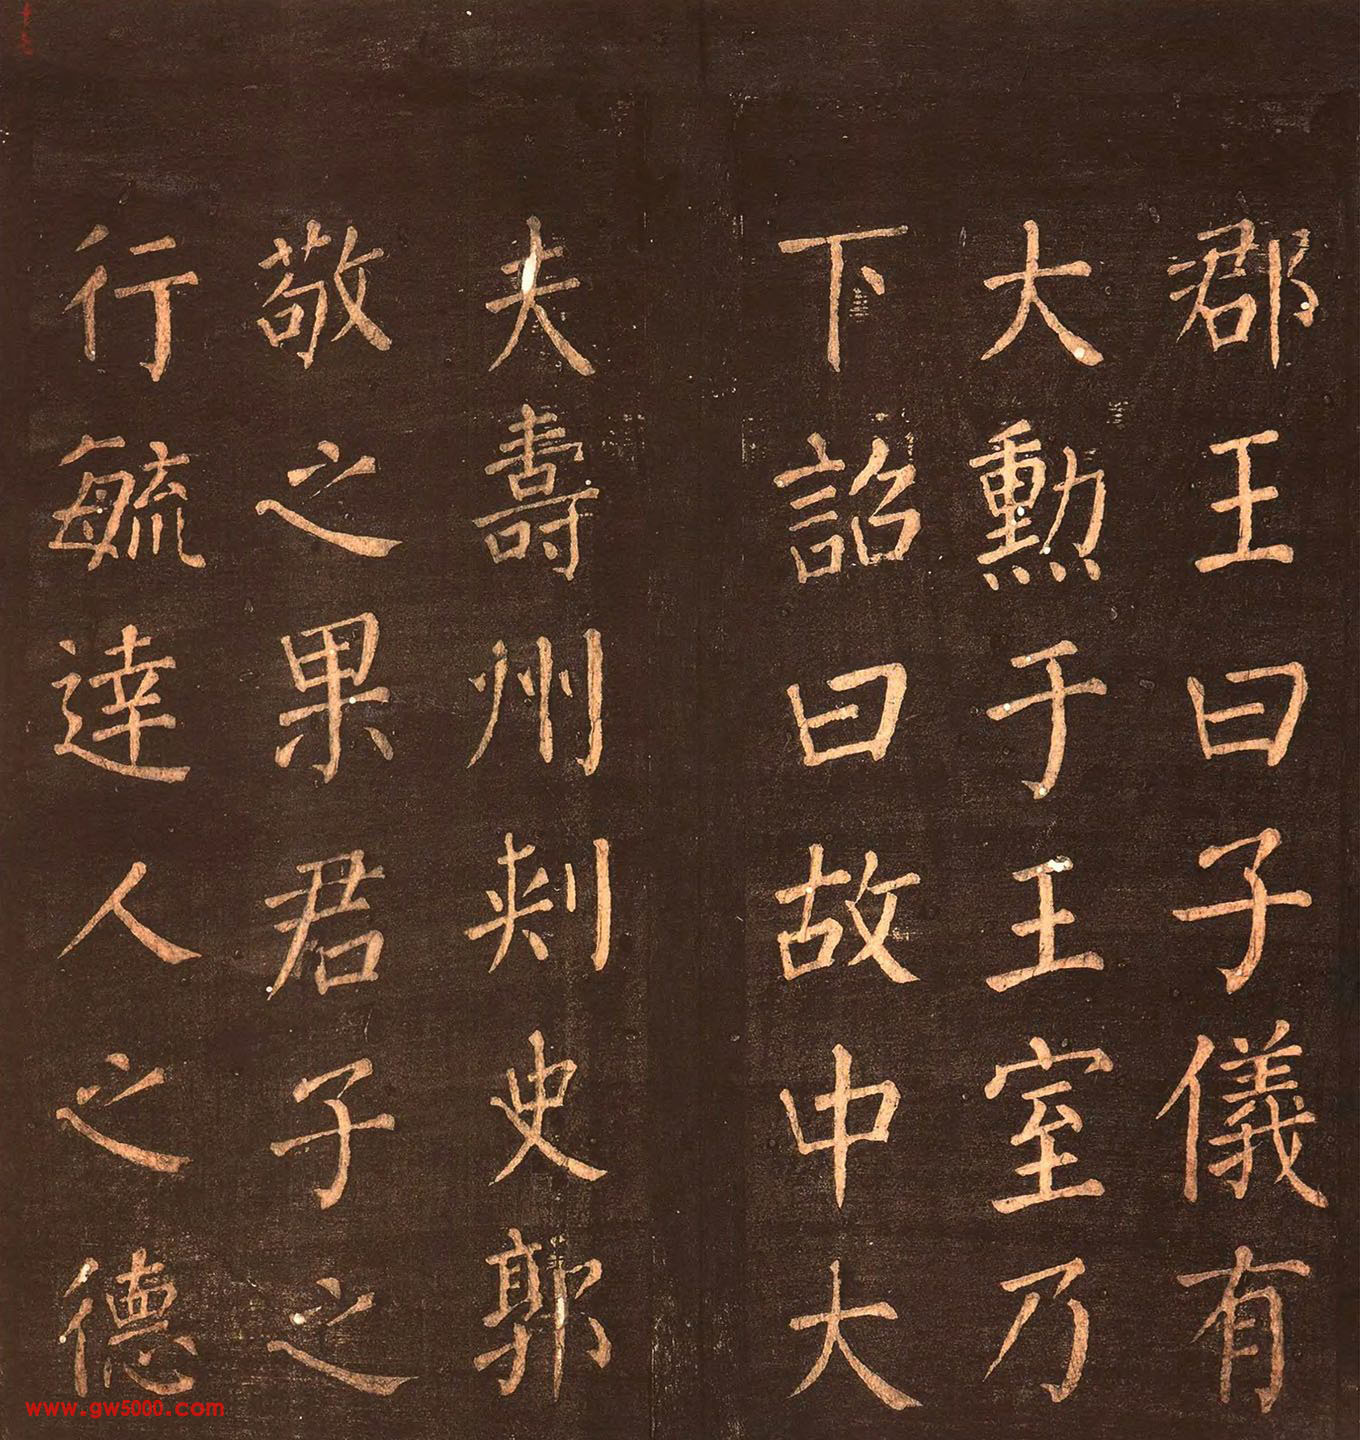 郡王曰子儀有
大勲于王室乃
下詔曰故中大
夫壽州刾史郭
敬之果君子之
行毓達人之德
www.gw5000.com